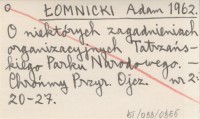 ŁOMNICKI Adam 1962.
O niektórych zagadnieniach
organizacyjnych Tatrzańs-
kiego Parku Narodowego. —
Chrońmy Przyr. Ojcz. nr 2:
20-27.